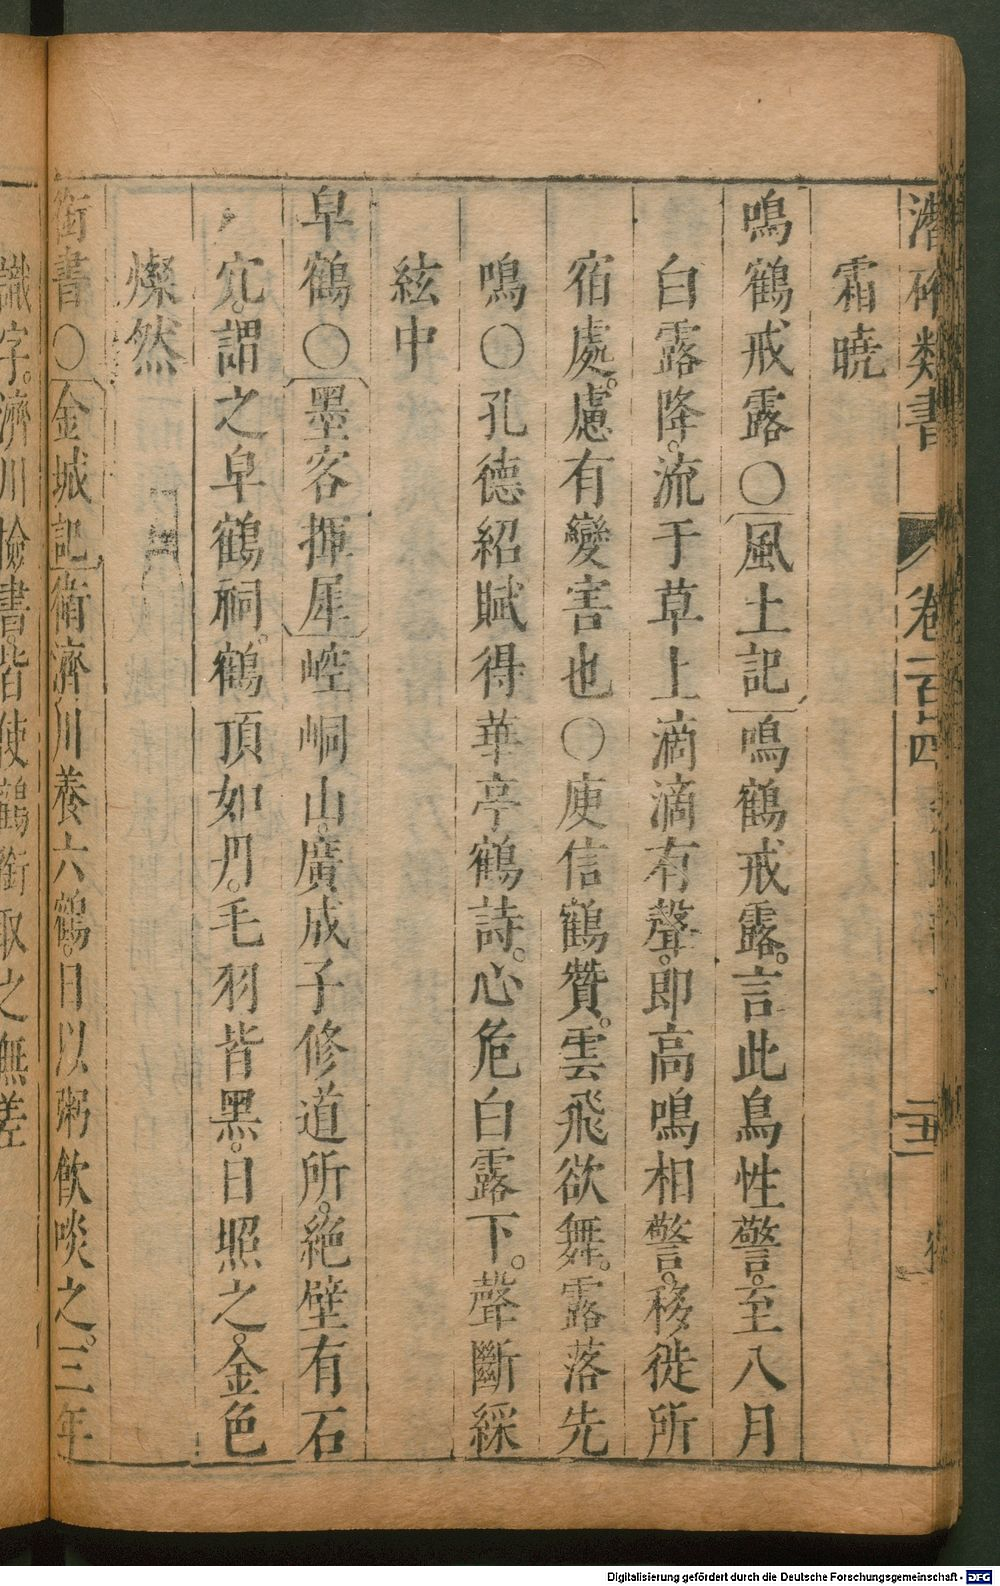 潛確類書 卷一百四
霜曉
鳴鶴戒露〇風土記鳴鶴戒露。言此鳥性警。至八月
白露降。流于草上滴滴有聲。即高鳴相警。移徙所
宿處。慮有變害也〇庾信鶴贊。雲飛欲舞。露落先
鳴〇孔德紹賦得華亭鶴詩。心危白露下。聲斷綵
絃中
皁鶴〇墨客揮犀崆峒山。廣成子修道所。絶壁有石
穴。謂之皁鶴祠。鶴頂如丹。毛羽皆黑。日照之。金色
燦然
銜書〇金城記衛濟川養六鶴。日以粥飲啖之。三年
識字。濟川檢書。皆使鶴銜取之無差
Digitalisierung gefördert durch die Deutsche Forschungsgemeinschaft - DFG